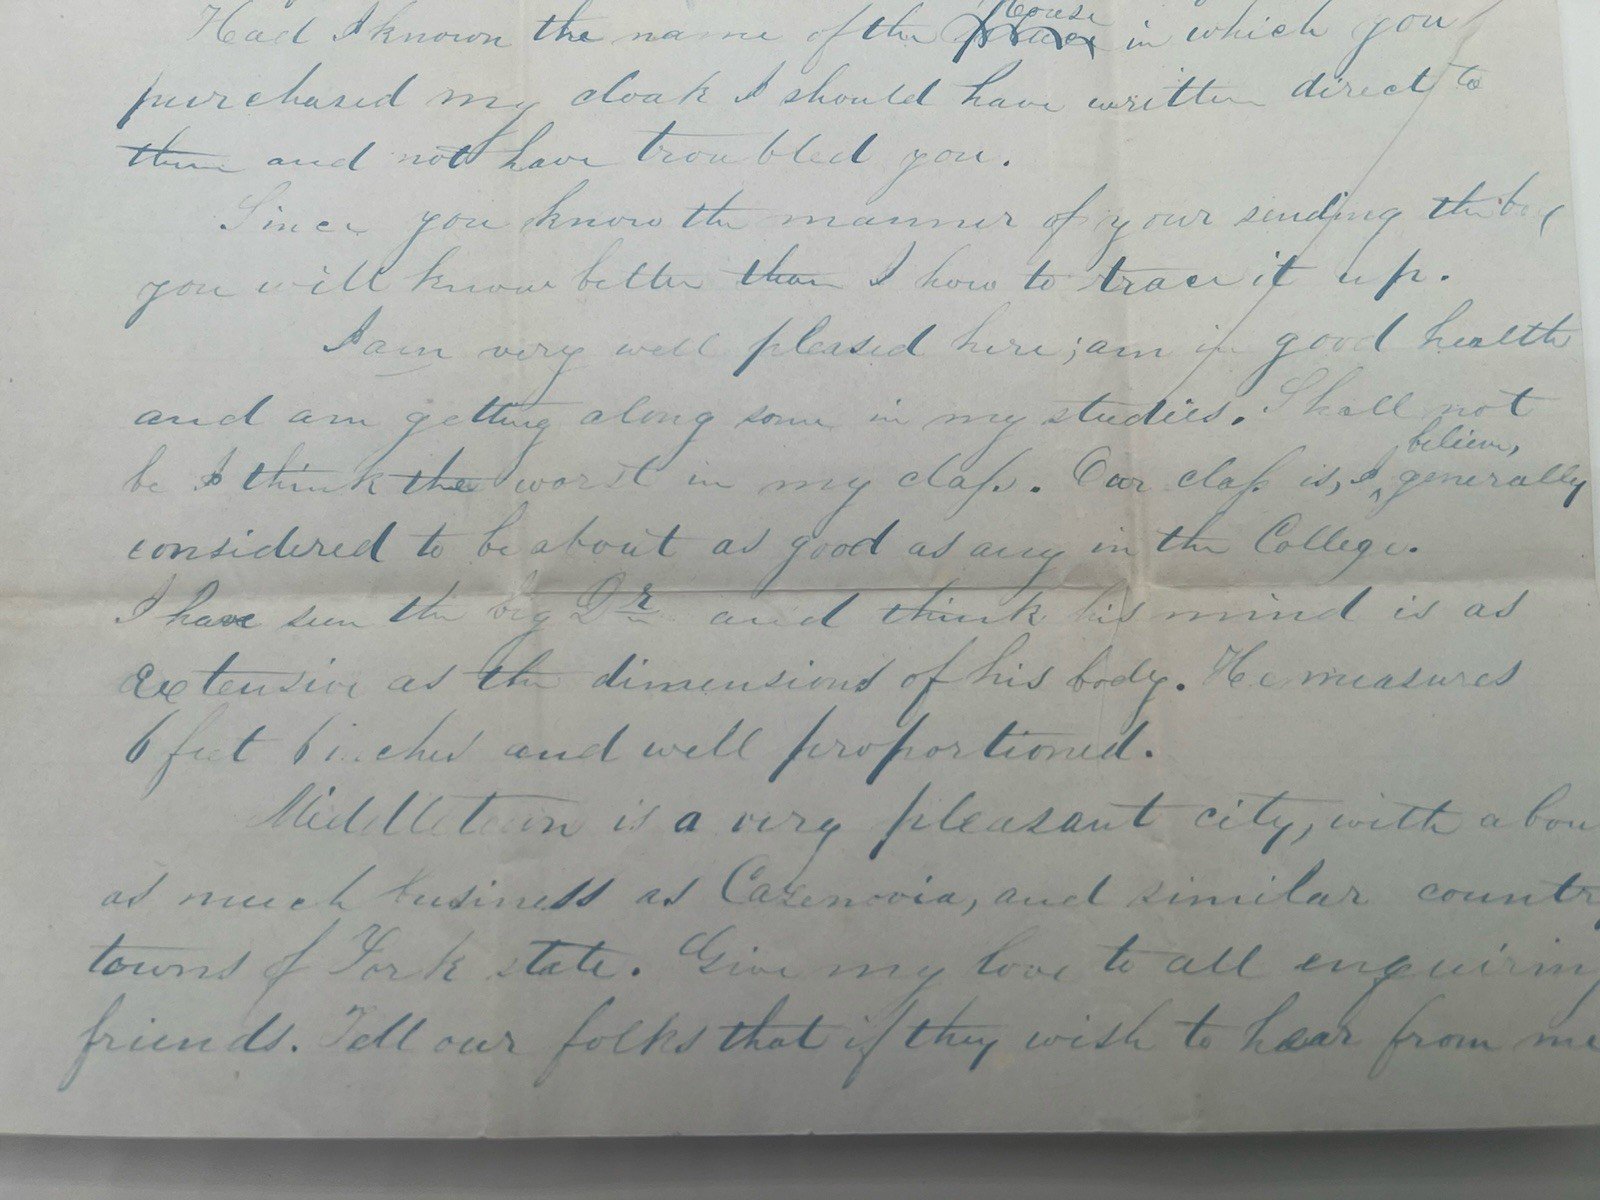 Had I known the name of the House in which you
purchased my cloak I should have written direct to
them and not have troubled you.
Since you know the manner of your sending the box
you will know better than I how to trace it up.
I am very well pleased here; am in good health
and am getting along some in my studies. Shall not
be I think the worst in my class. Our class is, I believe, generally
considered to be about as good as any in the College.
I have seen the big Dr and think his mind is as
extensive as the dimensions of his body. He measures
6 feet 6 inches and well proportioned.
Middletown is a very pleasant city, with abou
as much business as Cazenovia, and similar country
towns of York state. Give my love to all enquiring
friends. Tell our folks that if they wish to hear from me